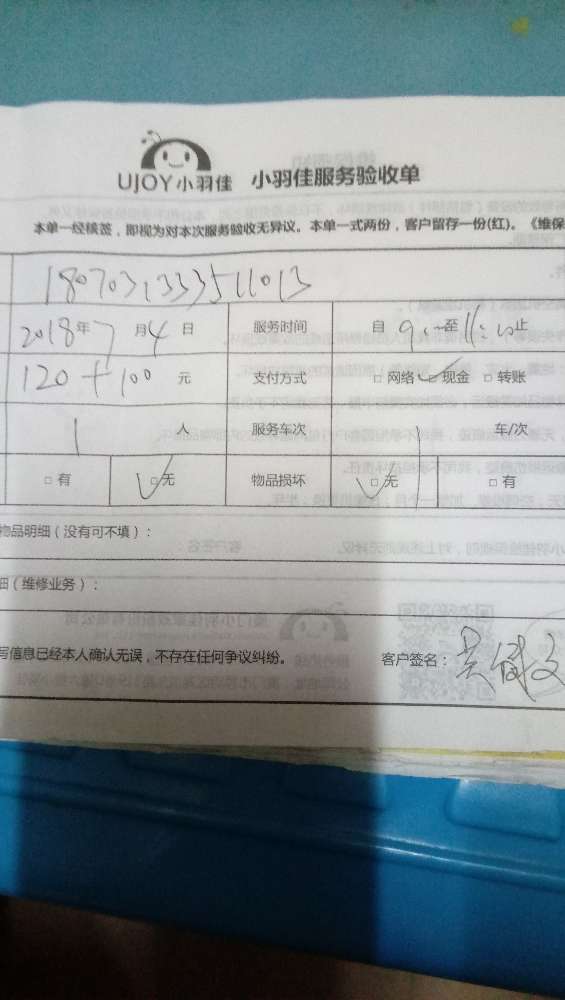 UJOY小羽佳 小羽佳服务验收单
本单一经核签，即视为对本次服务验收无异议。本单一式两份，客户留存一份(红)。《维保
1807031333511013
2018年7月4日 服务时间 自9:~至11:00止
120+100元 支付方式 □网络 ✓现金 □转账
1人 服务车次 1车/次
□有 ✓无 物品损坏 ✓无 □有
物品明细（没有可不填）：
细（维修业务）：
写信息已经本人确认无误，不存在任何争议纠纷。 客户签名：